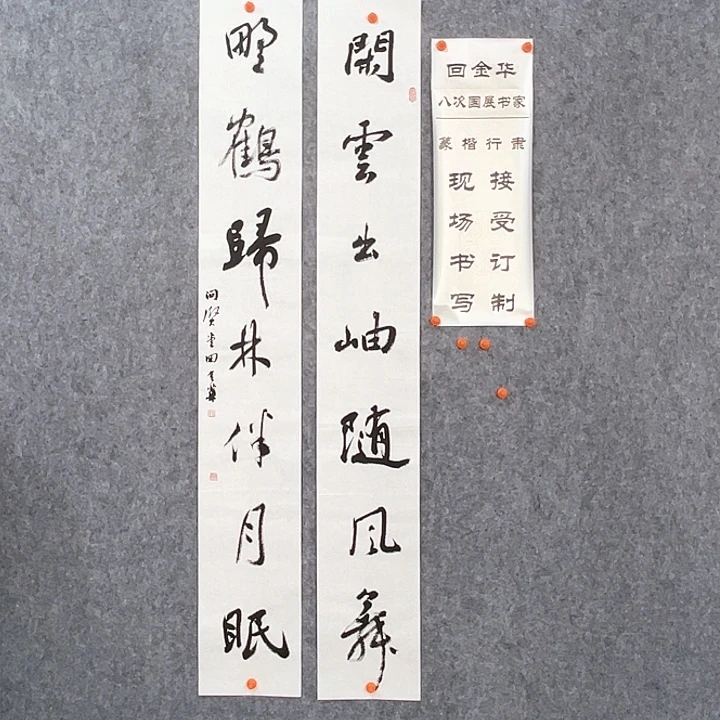 閑雲出岫随風舞
野鶴歸林伴月眠
問賢堂回金華
回金华
八次国展书家
篆楷行隶
接受订制
现场书写